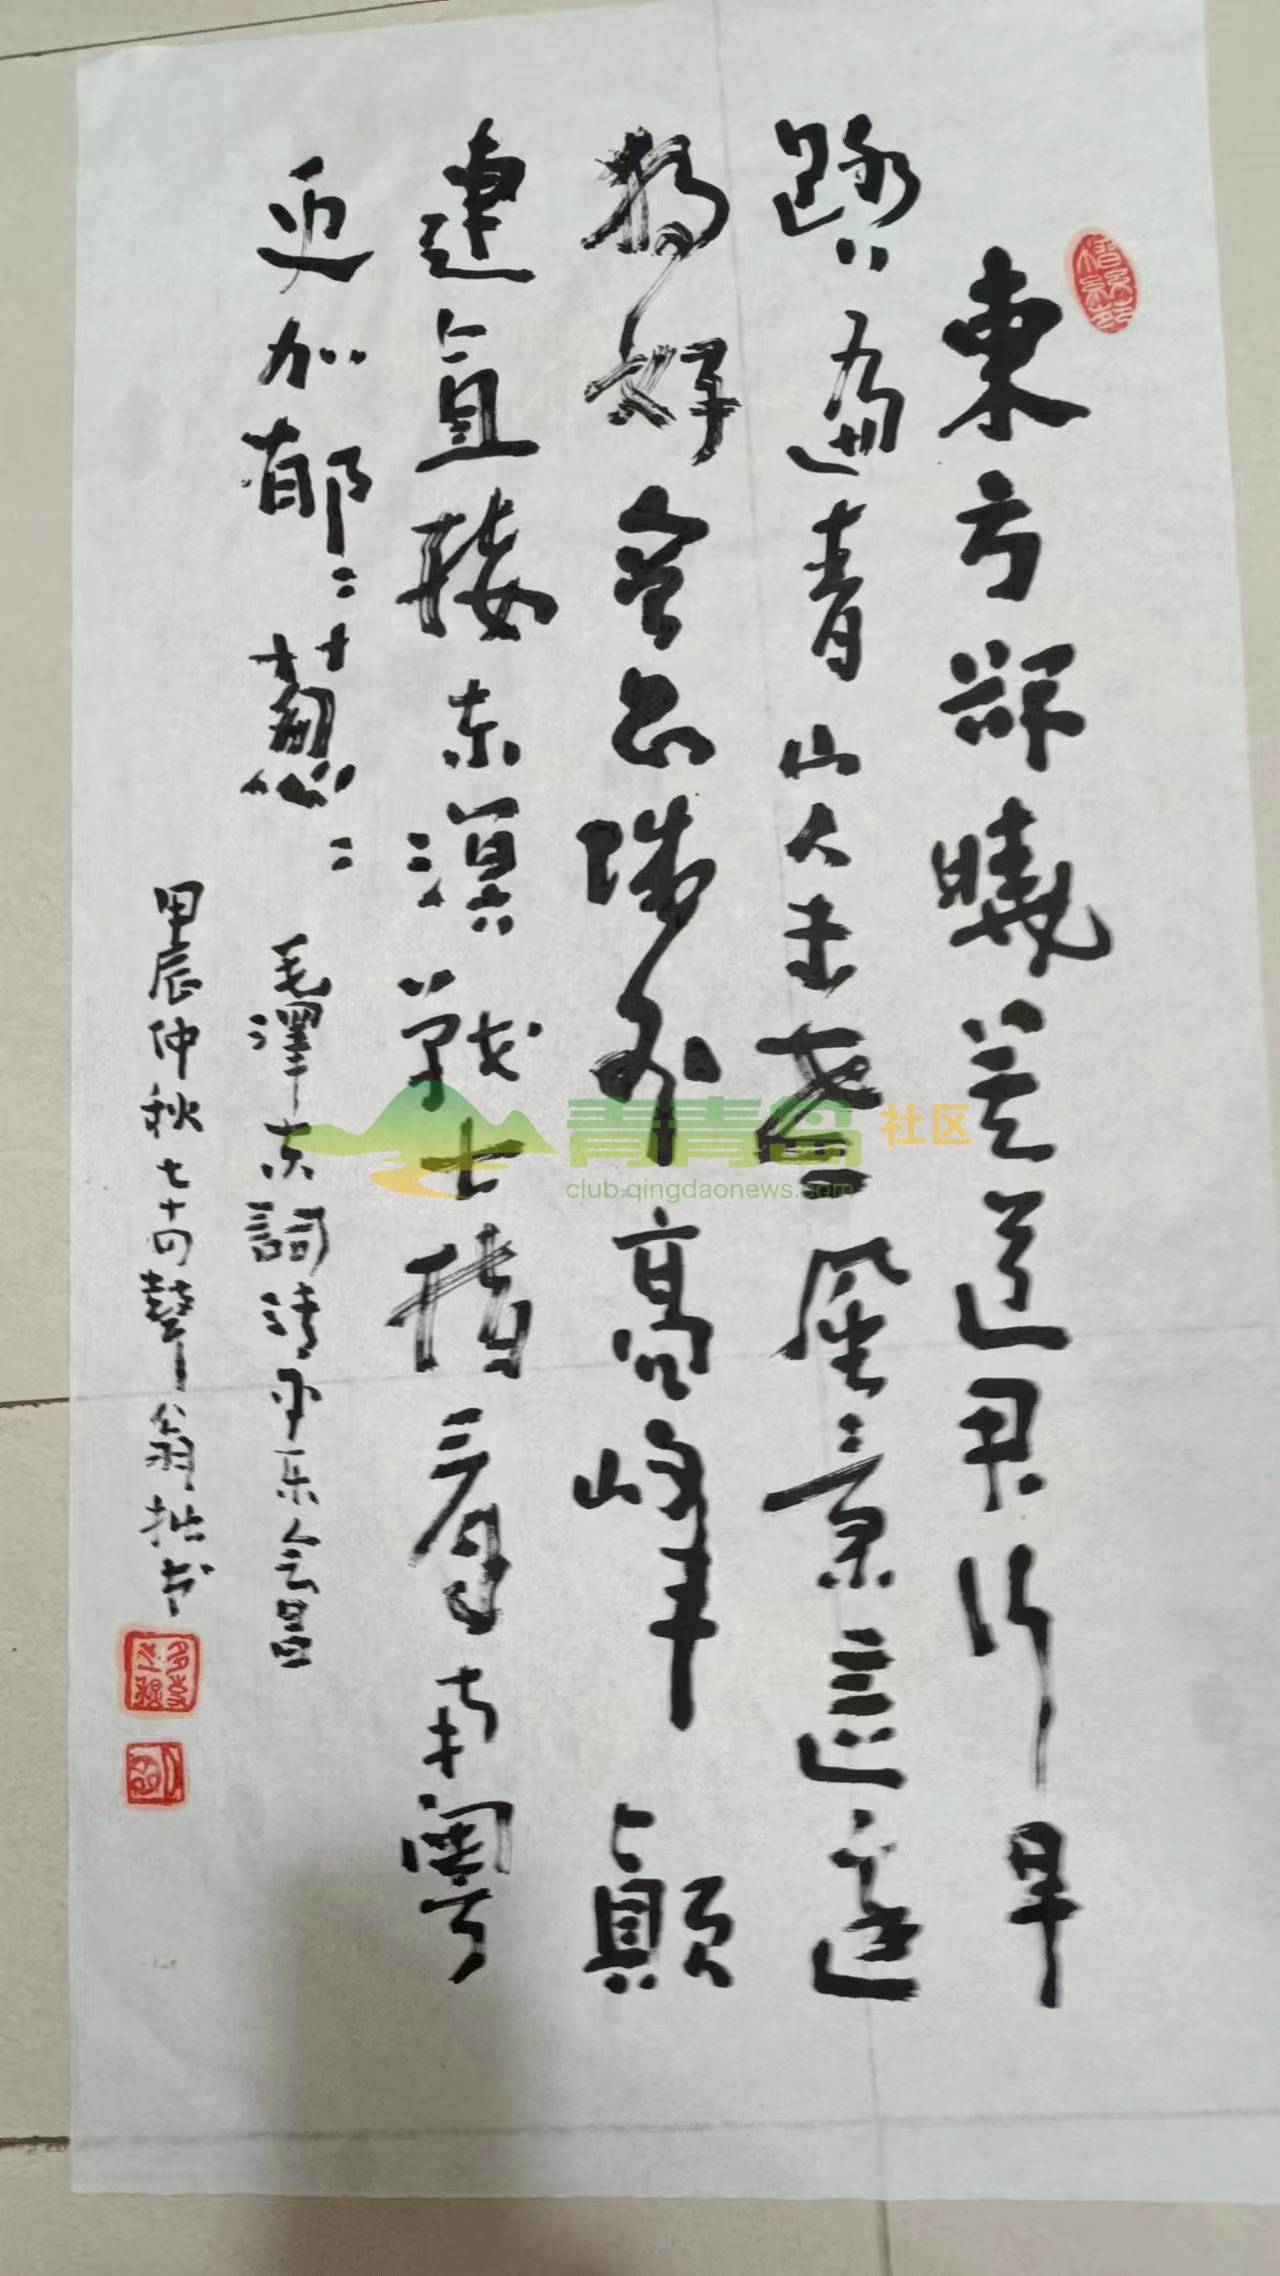 東方欲曉莫道君行早
踏遍青山人未老風景這邊
獨好會昌城外高峰顛
連直接东溟戰士指看南粵
更加郁〻葱〻 毛澤东詞清平乐会昌
甲辰仲秋七十四翁拙书
青青岛社区
club.qingdaonews.com